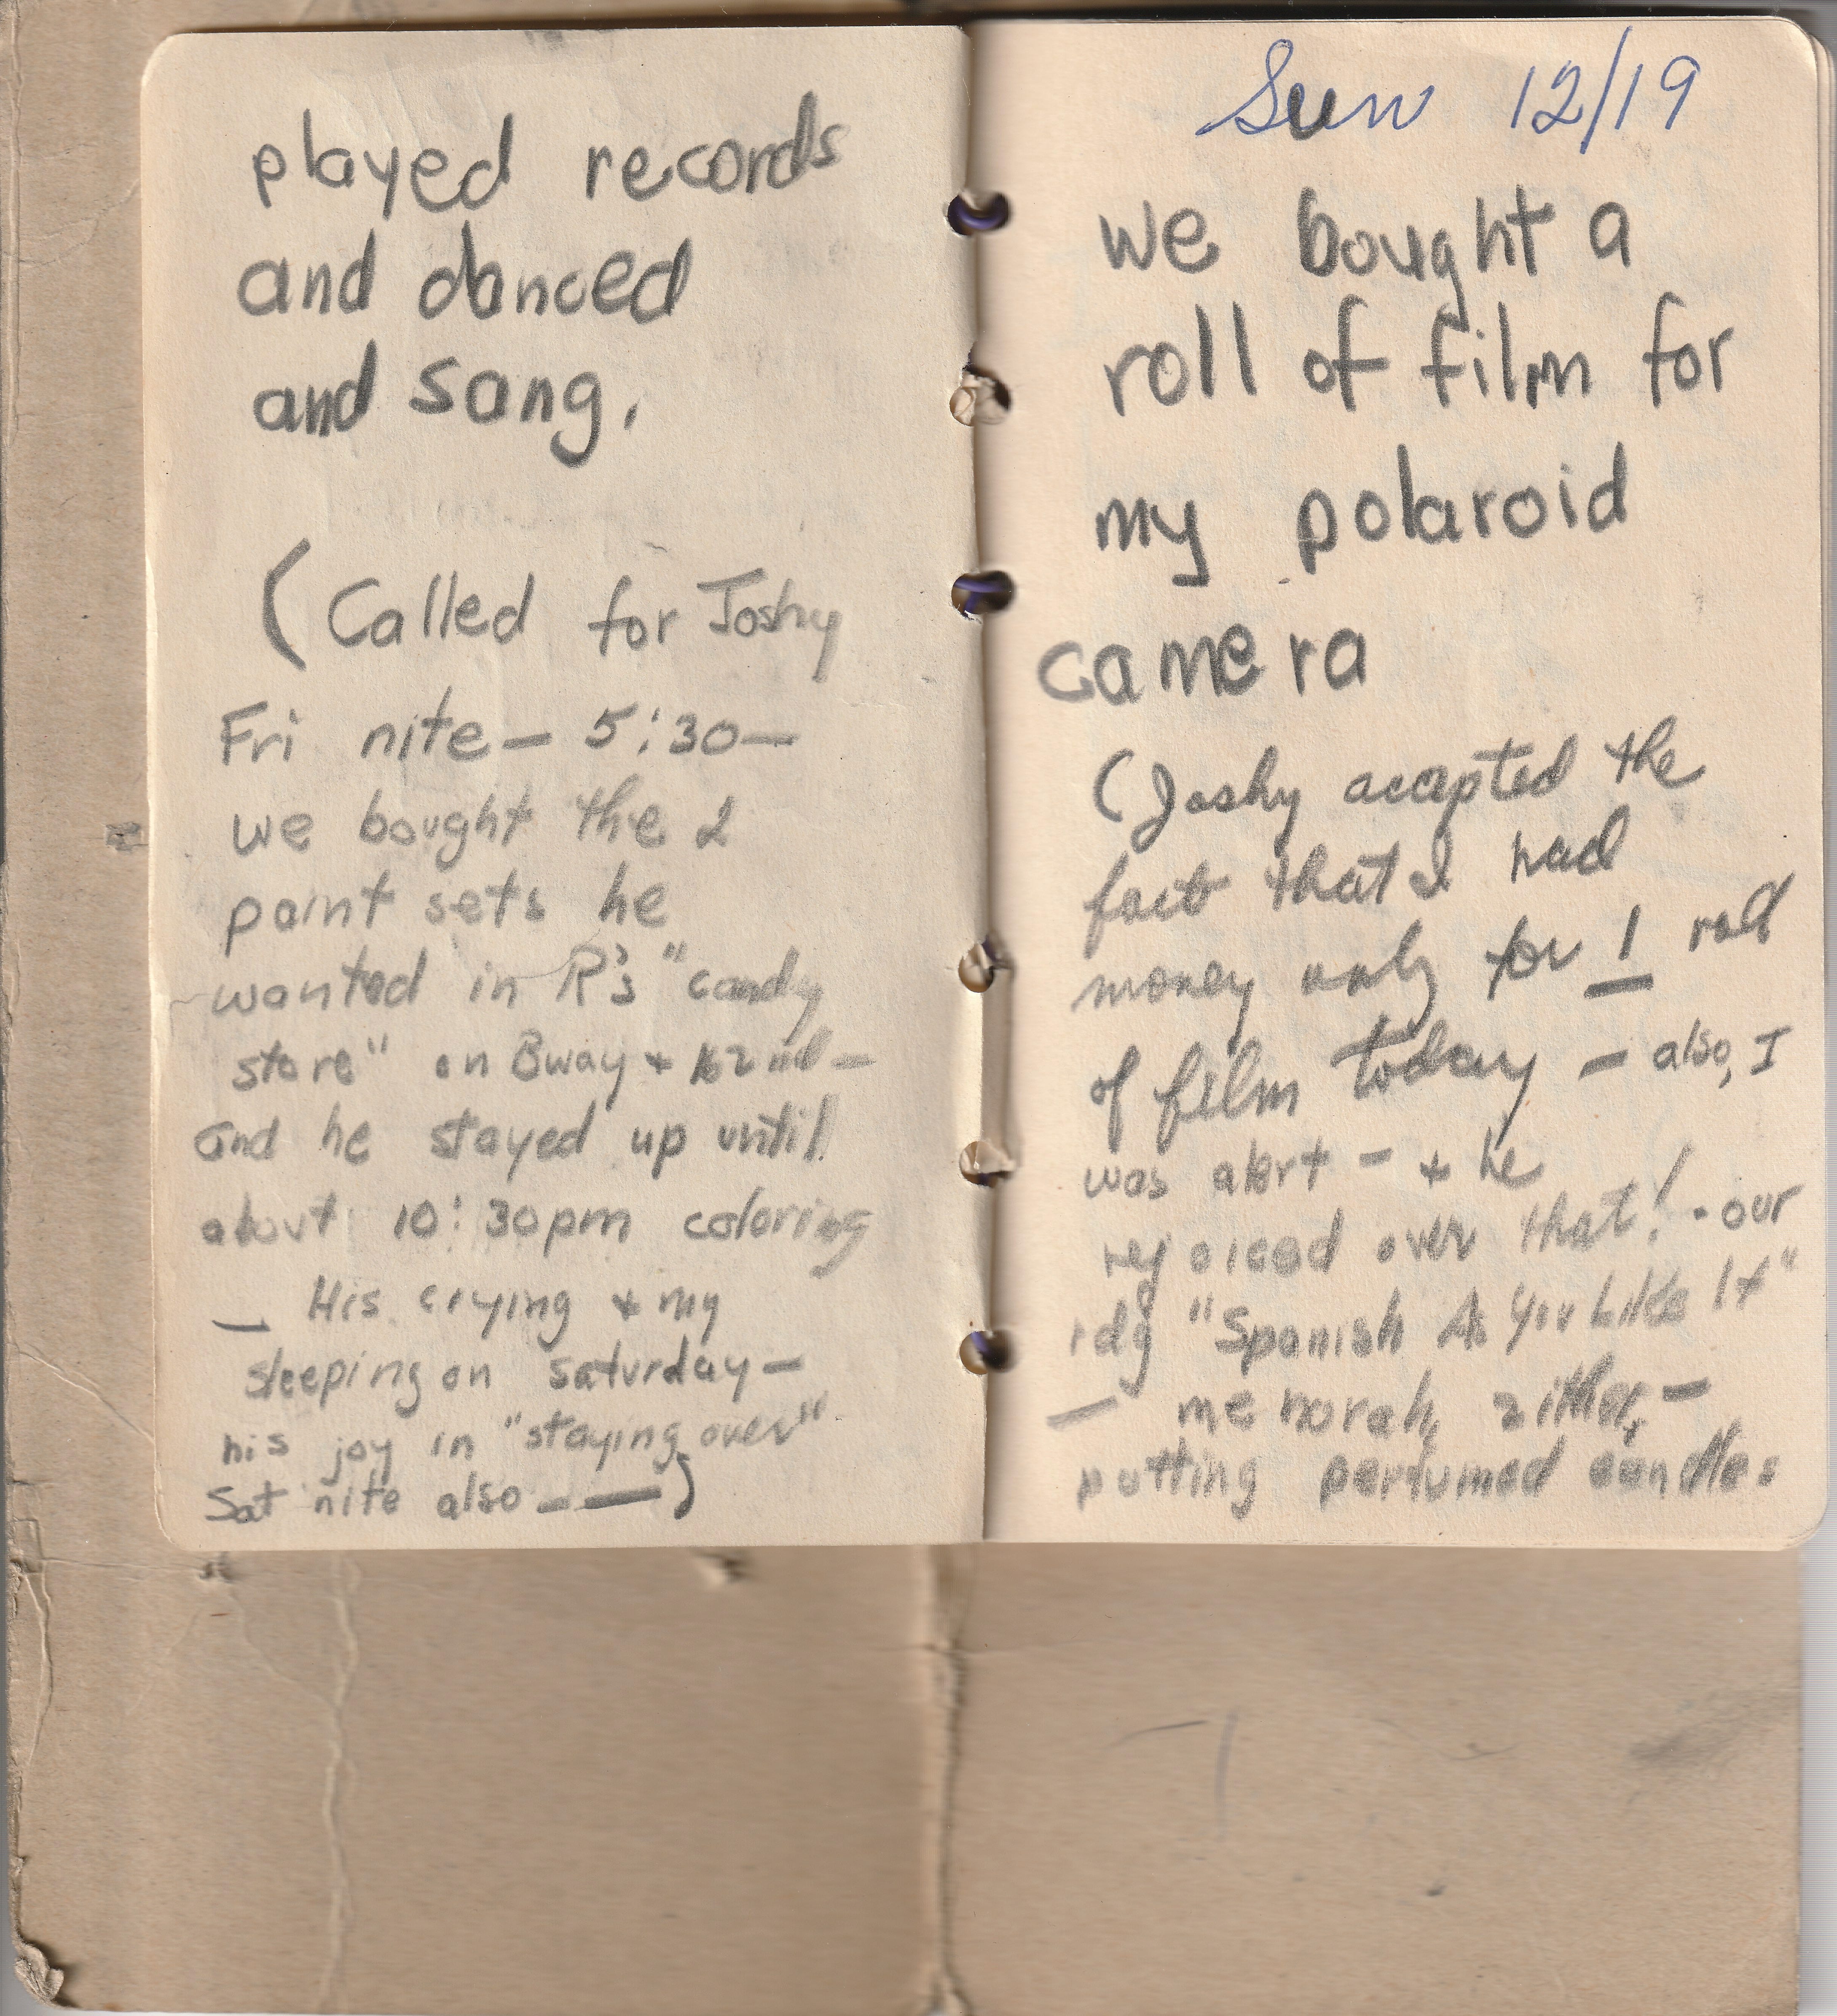 played records
and danced
and sang.
(Called for Joshy
Fri nite — 5:30 —
we bought the 2
paint sets he
wanted in R's "candy
store" on Bway + 162nd —
and he stayed up until
about 10:30pm coloring
— His crying + my
sleeping on saturday —
his joy in "staying over"
Sat nite also — —)
Sun 12/19
we bought a
roll of film for
my polaroid
camera
(Joshy accepted the
fact that I had
money only for 1 roll
of film today — also, I
was alert — + he
rejoiced over that! · our
rdg "Spanish As You Like It"
— menorah, zither, —
putting perfumed candles